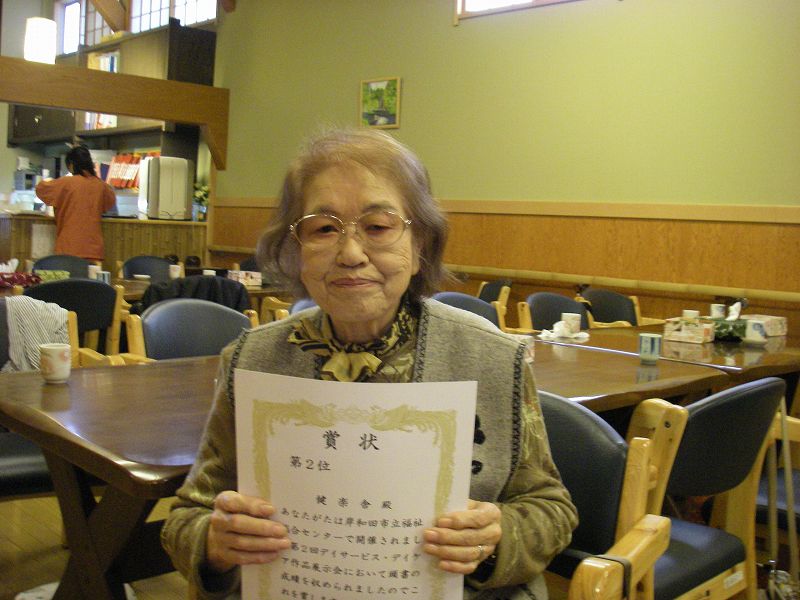 賞状
第2位
健楽舎殿
あなたがたは岸和田市立福祉
合センターで開催されまし
第2回デイサービス・デイケ
ア作品展示会において頭書の
成績を収められましたのでこ
れを賞し